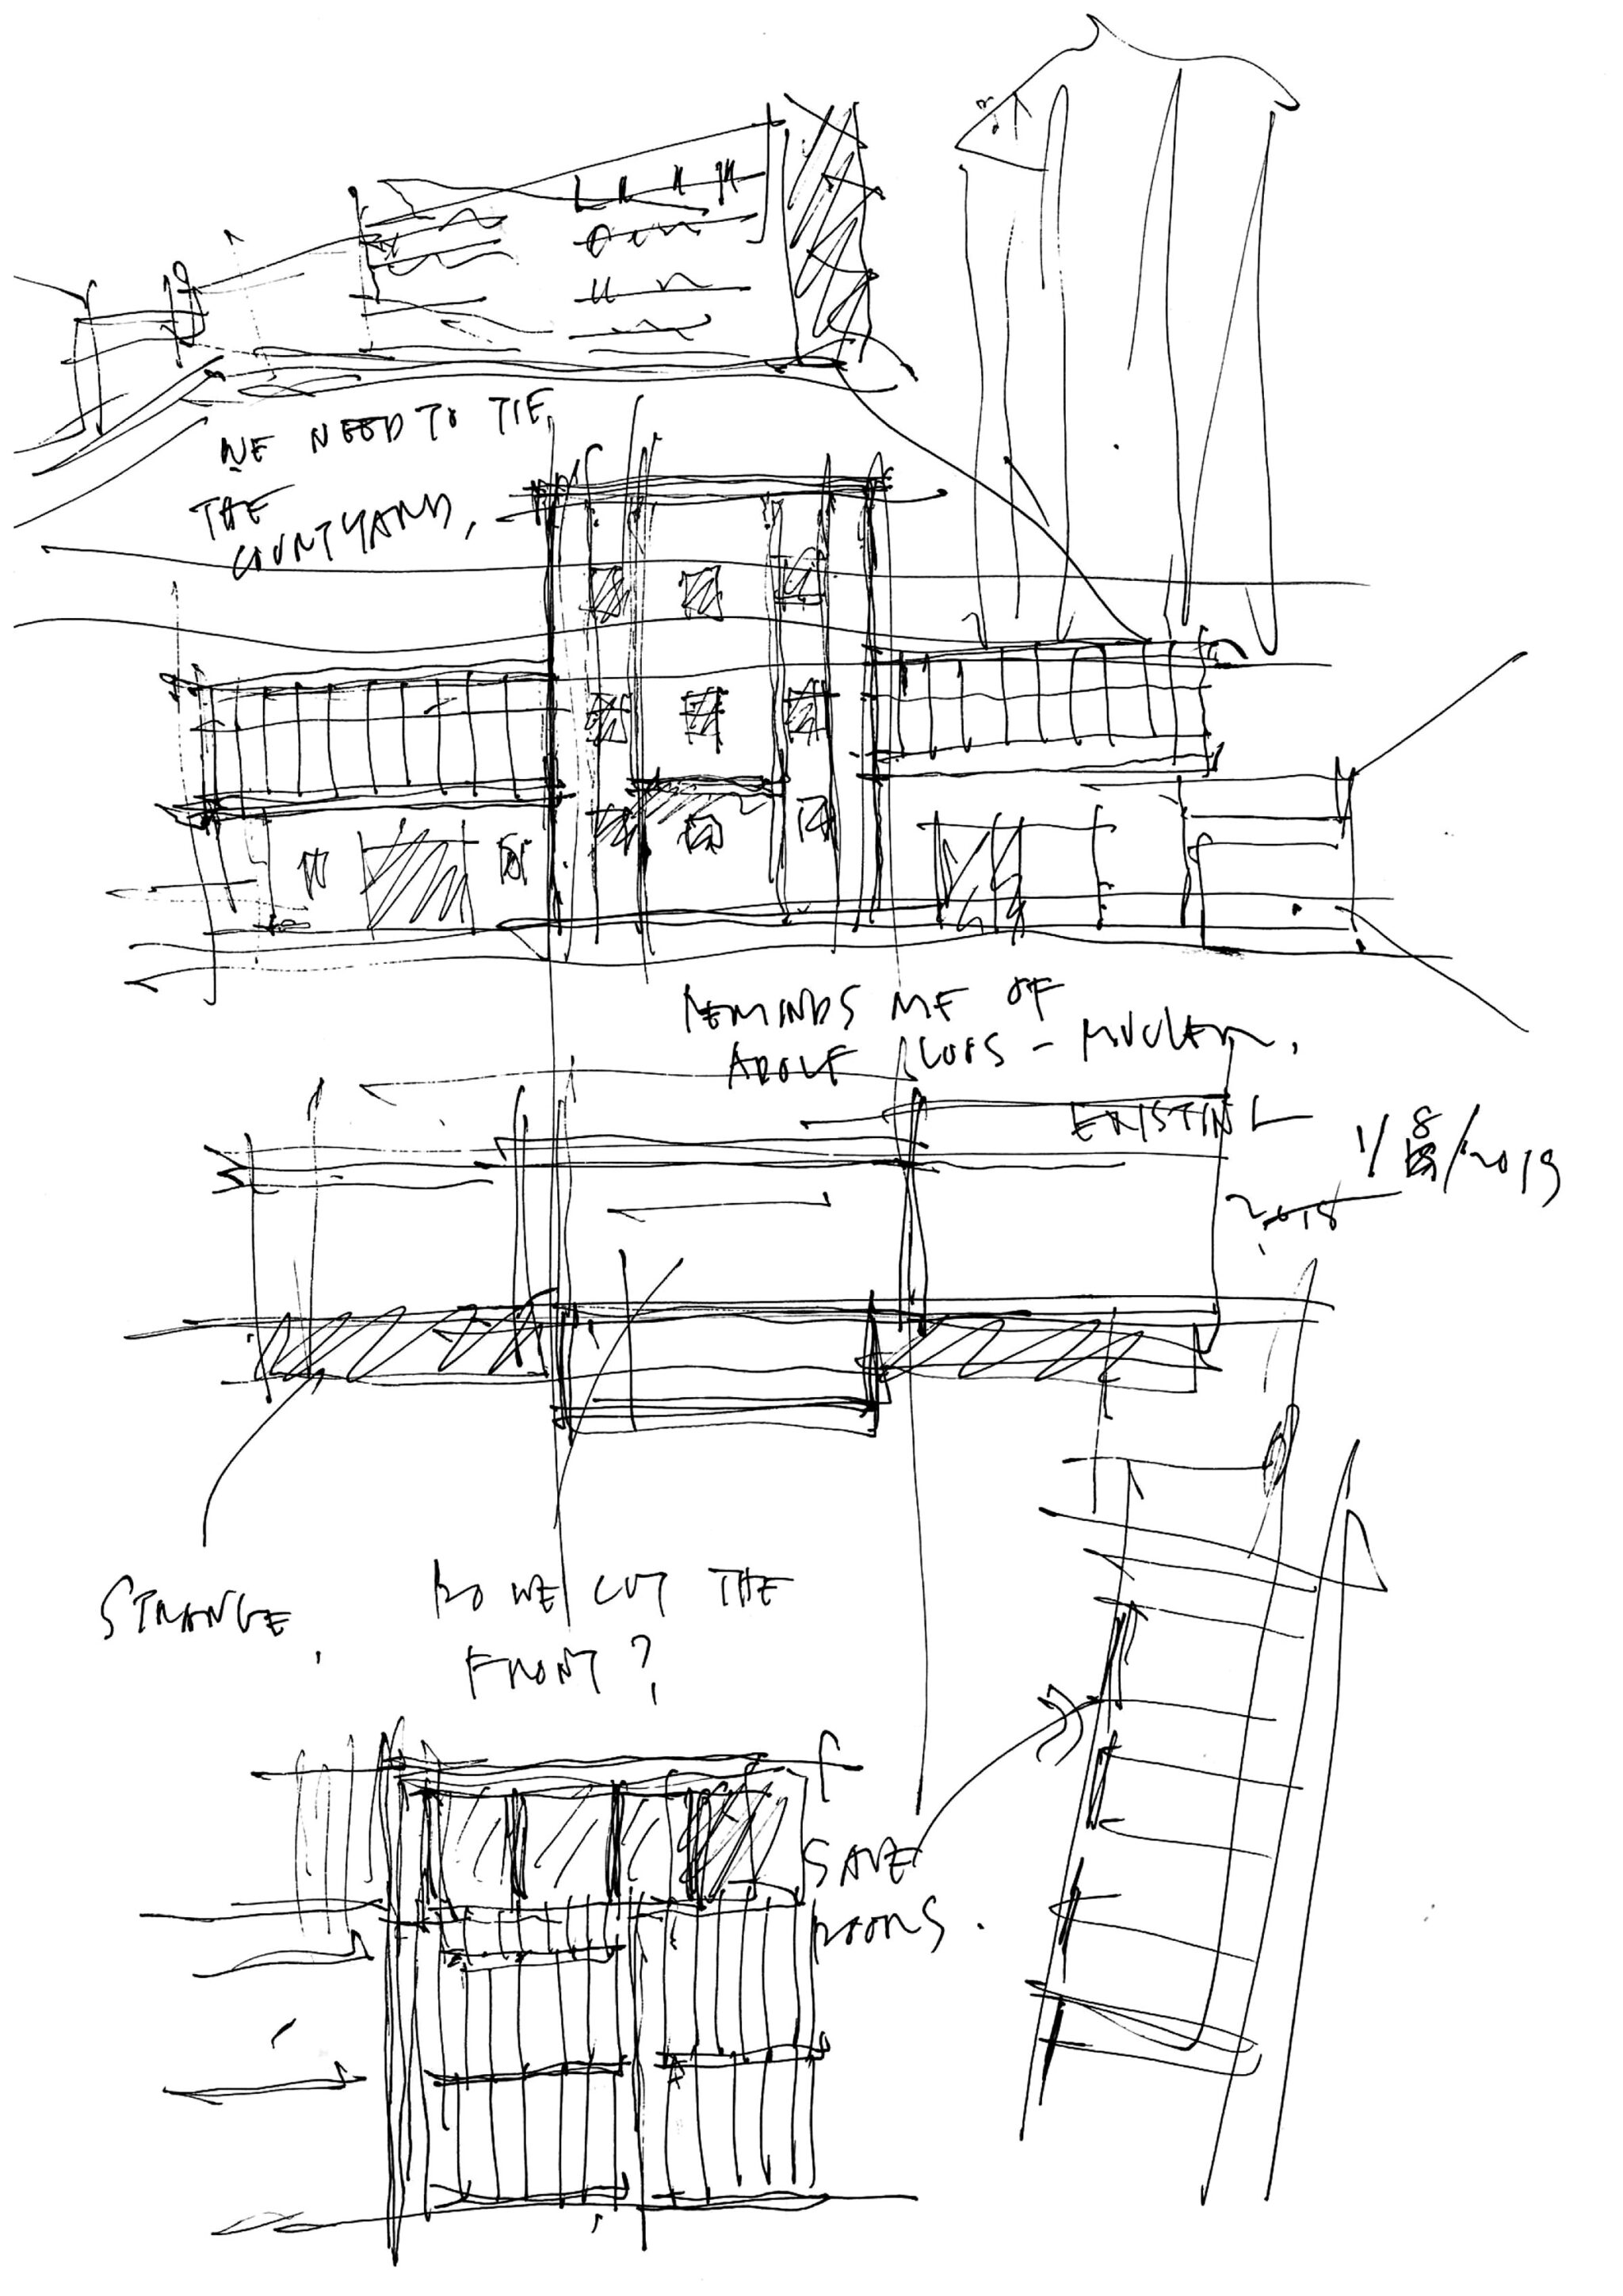 WE NEED TO TIE
THE
COURTYARD,
REMINDS ME OF
ADOLF LOOS - MULLER.
EXISTING
1/8/2019
2018
STRANGE.
DO WE CUT THE
FRONT?
SAVE
ROOMS.